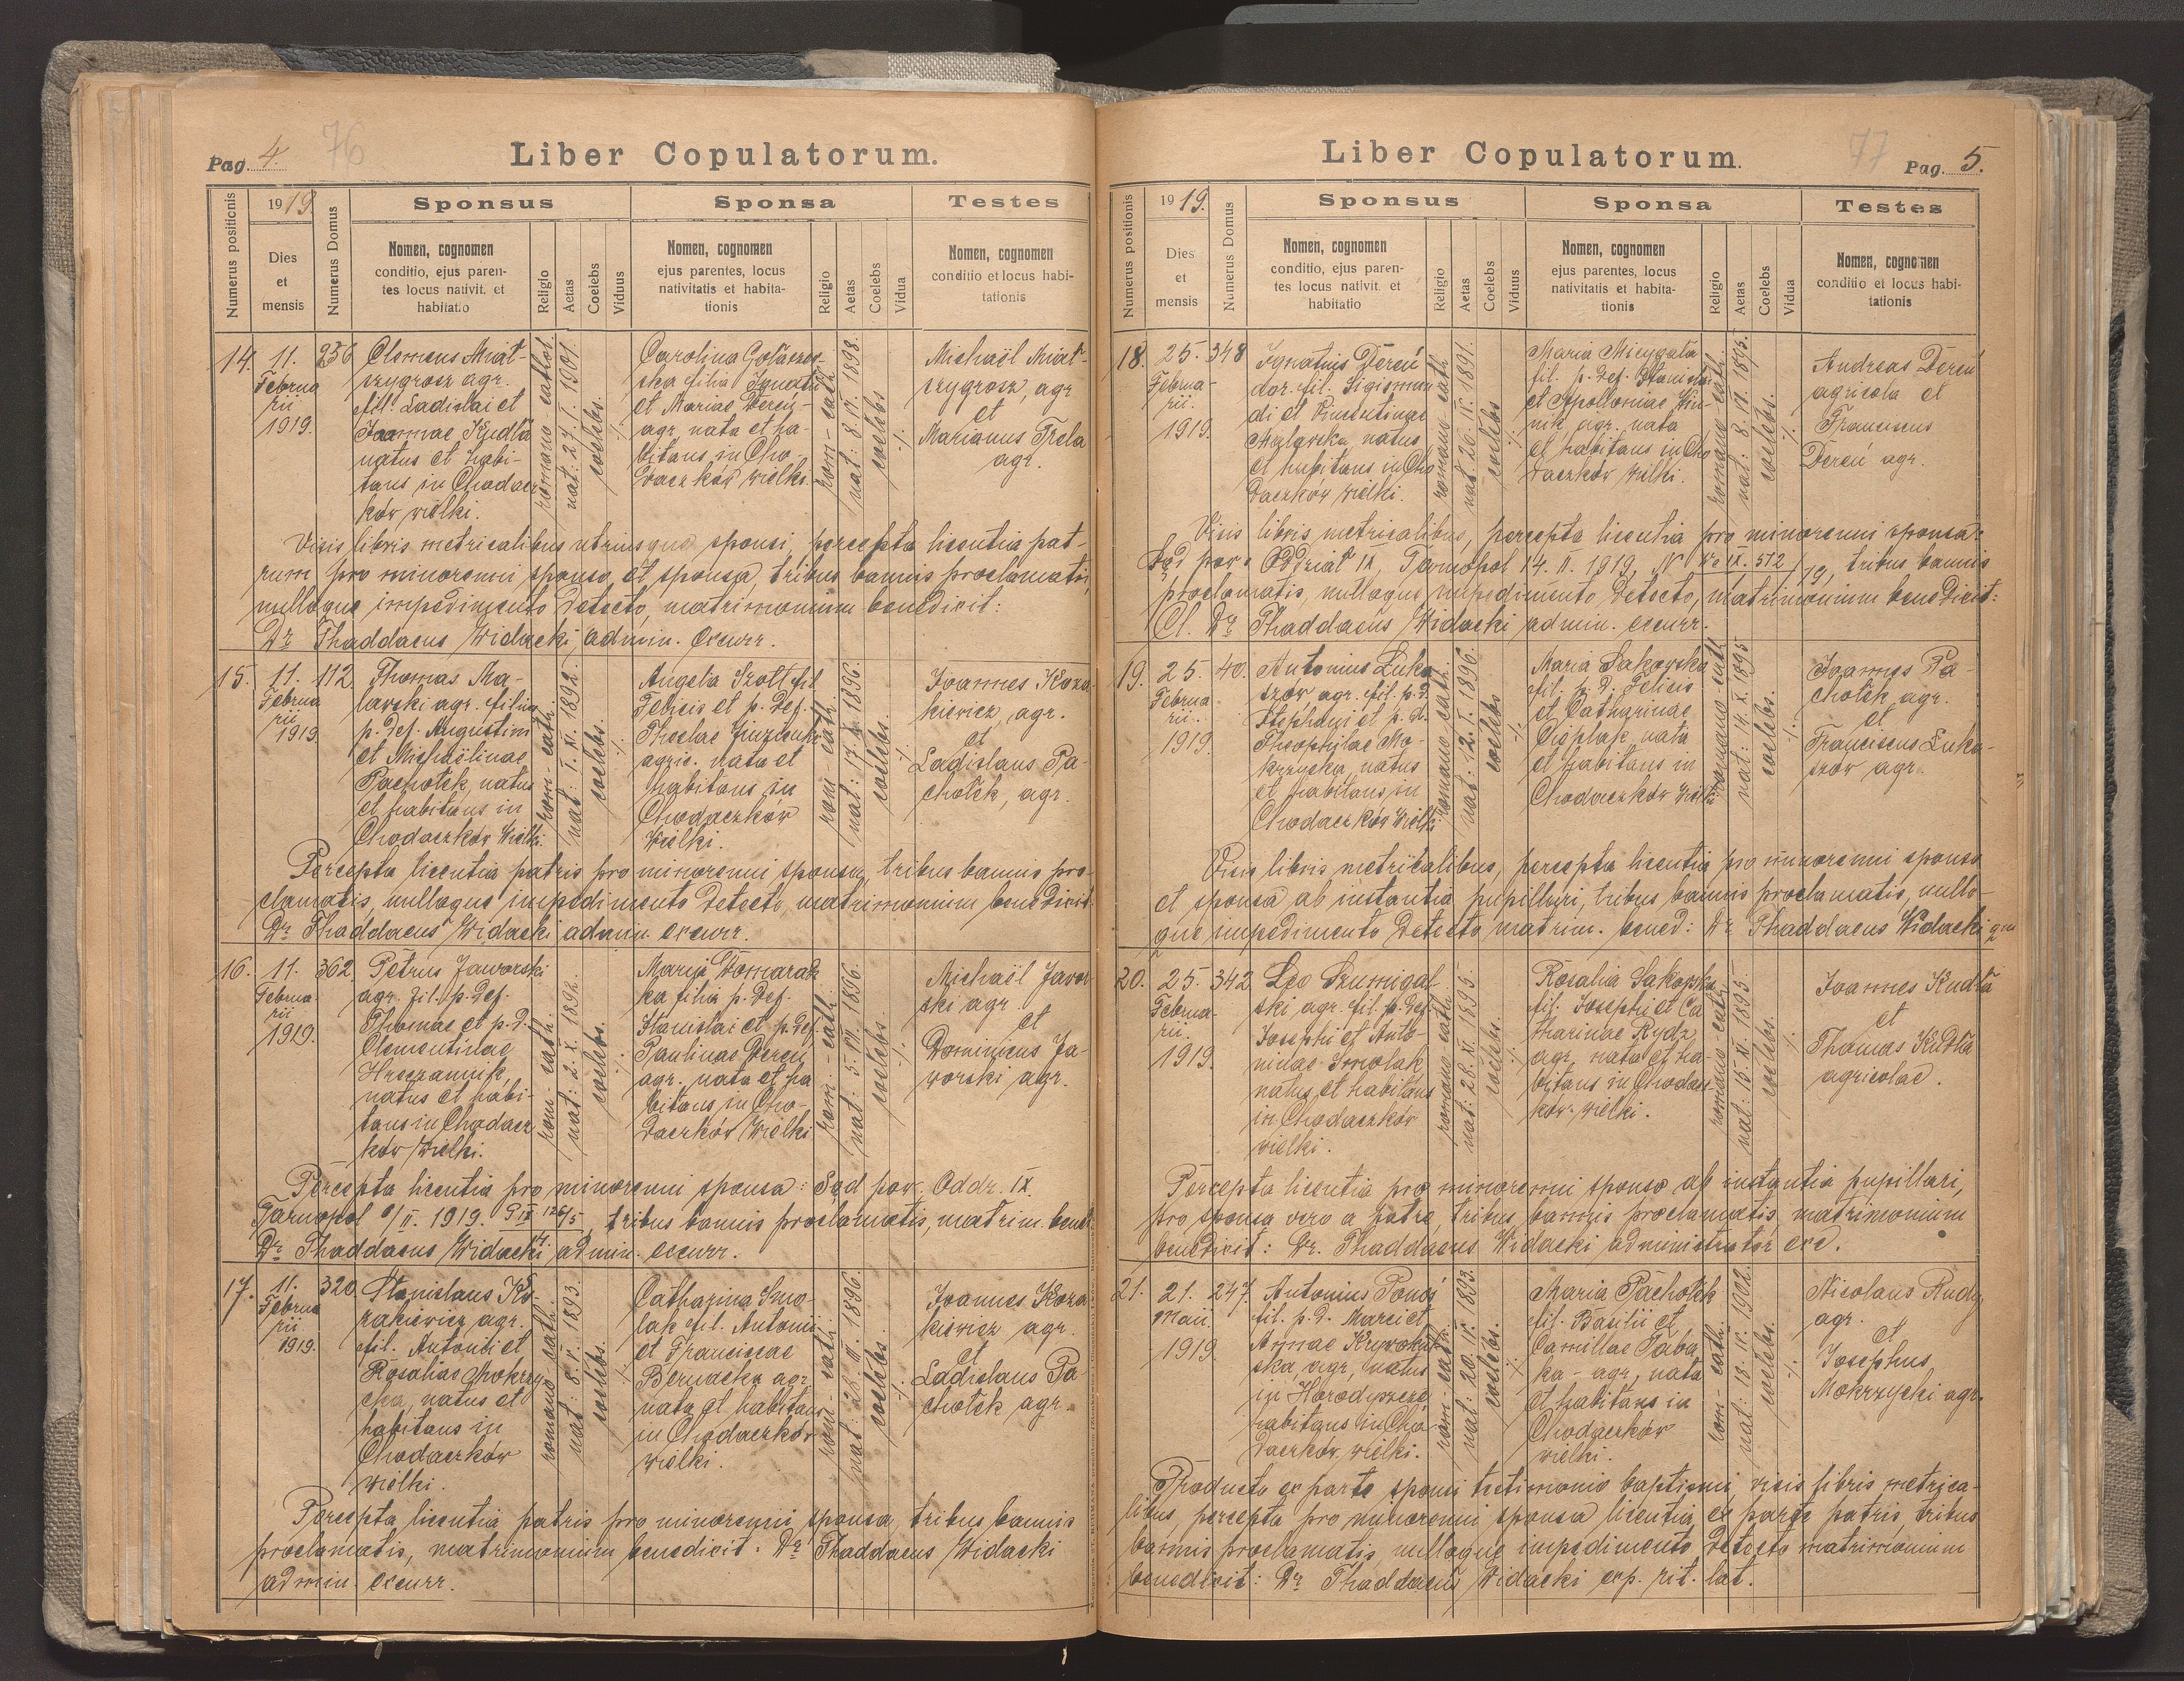 Pag. 4.
76
Liber Copulatorum.
Numerus positionis
1919.
Dies
et
mensis
Numerus Domus
Sponsus
Nomen, cognomen
conditio, ejus paren-
tes locus nativit. et
habitatio
Religio
Aetas
Coelebs
Viduus
Sponsa
Nomen, cognomen
ejus parentes, locus
nativitatis et habita-
tionis
Religio
Aetas
Coelebs
Vidua
Testes
Nomen, cognomen
conditio et locus habi-
tationis
14.
11.
Februa
rii
1919.
236
Clemens Miąt-
szygrosz agr.
fil. Ladislai et
Joannae Kudła
natus et habi-
tans in Chodacz
ków wielki.
romano cathol.
nat: 27. I. 1901.
coelebs.
Carolina Gołaszew-
ska filia Ignatii
et Mariae Dereń-
agr. nata et ha-
bitans in Cho
daczków wielki.
rom- cath
nat: 8. IV. 1898.
coelebs
Michaël Miąt-
szygrosz, agr
et
Marianus Trela
agr.
Visis libris metricalibus utriusque sponsi, percepta licentia pat-
rum pro minorenni sponso et sponsa, tribus bannis proclamatis,
nulloque impedimento detecto, matrimonium benedixit:
Dr Thaddaeus Widacki admin. excurr.
15.
11.
Februa
rii
1919
112.
Thomas Ma-
larski agr. filius
p. def. Augustini
et Michaëlinae
Pachołek, natus
et habitans in
Chodaczków Wielki.
rom cath.
nat: 1. XI. 1892.
coelebs.
Angela Szott fil
Felicis et p. def.
Theclae
agric. nata et
habitans in
Chodaczków
Wielki.
rom - cath.
coelebs.
Joannes Koza-
kiewicz, agr.
et
Ladislaus Pa-
chołek, agr.
Percepta licentia patris pro minorenni sponsa, tribus bannis pro-
clamatis, nulloque impedimento detecto, matrimonium benedixit.
Dr Thaddaeus Widacki admin. excurr.
16.
11.
Februa-
rii
1919.
362.
Petrus Jaworski
agr. fil. p. def.
Thomae et p. d.
Clementinae
natus et habi-
tans in Chodacz
ków Wielki.
rom. cath.
nat: 2. X. 1892.
coelebs.
Maria Domaradz
ka filia p. def.
Stanislai et p. def.
Paulinae Dereń
agr. nata et ha
bitans in Cho-
daczków Wielki
rom - cath.
nat: 5. VII. 1896.
coelebs.
Michaël Jawor
ski agr.
et
Dominicus Ja-
worski agr.
Percepta licentia pro minorenni sponsa: Sąd pow. Oddz. IX.
Tarnopol 6/II. 1919. P IX 126/5, tribus bannis proclamatis, matrim. bened.
Dr Thaddaeus Widacki admin. excurr.
17.
11.
Februa
rii
1919.
320
Stanislaus Ko-
zakiewicz agr.
fil. Antonii et
Rosaliae Mokrzy
cka, natus et
habitans in
Chodaczków
wielki.
romano cath.
coelebs.
Catharina Smo-
lak fil. Antonii
et Franciscae
Bernacka agr
nata et habitans
in Chodaczków
wielki.
rom - cath
nat: 28. III. 1896.
coelebs.
Joannes Koza
kiewicz agr.
et
Ladislaus Pa
chołek agr.
Percepta licentia patris pro minorenni sponsa, tribus bannis
proclamatis, matrimonium benedixit. Dr Thaddaeus Widacki
admin. excurr.
Liber Copulatorum.
77
Pag. 5.
Numerus positionis
1919.
Dies
et
mensis
Numerus Domus
Sponsus
Nomen, cognomen
conditio, ejus paren-
tes locus nativit. et
habitatio
Religio
Aetas
Coelebs
Viduus
Sponsa
Nomen, cognomen
ejus parentes, locus
nativitatis et habita-
tionis
Religio
Aetas
Coelebs
Vidua
Testes
Nomen, cognomen
conditio et locus habi-
tationis
18.
25.
Februa-
rii.
1919.
348
Ignatius Dereń
agr. fil. Sigismun
di et Vincentinae
Malarska natus
et habitans in Cho
daczków wielki.
romano cath
nat. 26. II. 1891.
coelebs
Maria Micygała
fil. p. def. Stanislai
et Apolloniae
agr. nata
et habitans in Cho
daczków Wielki.
romano - cath.
nat: 8. VI. 1895.
coelebs.
Andreas Dereń
agricola et
Franciscus
Dereń agr.
Visis libris metricalibus, percepta licentia pro minorenni sponsa:
Sąd pow. Oddział IX, Tarnopol 14. II. 1919, N 572/19, tribus bannis
proclamatis, nulloque impedimento detecto, matrimonium benedixit:
Cl. Dr Thaddaeus Widacki admin. excurr.
19.
25.
Februa
rii.
1919.
40.
Antonius Łuka
szów agr. fil. p. d.
Stephani et p. d.
Theophilae Mo-
krzycka, natus
et habitans in
Chodaczków Wielki
romano cath.
nat: 12. I. 1896.
coelebs
Maria Sakowska
fil. p. d. Felicis
et Catharinae
nata
et habitans in
Chodaczków Wielki
romano - cath
nat: 14. X. 1895
coelebs.
Joannes Pa-
chołek agr.
et
Franciscus Łuka-
szów agr.
Visis libris metricalibus, percepta licentia pro minorenni sponso
et sponsa ab instantia pupillari, tribus bannis proclamatis, nullo-
que impedimento detecto matrim. bened: Dr Thaddaeus Widacki
20.
25.
Februa-
rii.
1919.
342
Leo Szumigal
ski agr. fil. p. def.
Josephi et Anto-
ninae Smolak
natus et habitans
in Chodaczków
wielki.
romano cath.
nat: 28. XI. 1895.
coelebs.
Rosalia Sakowska
fil. Josephi et Ca
tharinae Rydz
agr. nata et ha-
bitans in Chodacz-
ków wielki.
romano - cath
coelebs.
Joannes Kudła
et
Thomas Kudła
agricolae.
Percepta licentia pro minorenni sponso ab instantia pupillari,
pro sponsa vero a patre, tribus bannis proclamatis, matrimonium
benedixit: Dr. Thaddaeus Widacki administrator exc.
21.
21.
Maii
1919.
247.
Antonius
fil. p. d. Marci et
Annae
ska, agr, natus
in Horodyszcze
habitans in Cho
daczków wielki.
rom - cath.
nat: 20. IV. 1893.
coelebs.
Maria Pachołek
fil. Basilii et
Camillae Taba
ka - agr, nata
et habitans in
Chodaczków
wielki.
rom - cath.
nat: 18. IV. 1902.
coelebs.
Nicolaus Rudy
agr.
et
Josephus
Mokrzycki agr.
Producto ex parte sponsi testimonio baptismi, visis libris metrica-
libus, percepta pro minorenni sponsa licentia ex parte patris, tribus
bannis proclamatis, nulloque impedimento detecto matrimonium
benedixit: Dr Thaddaeus Widacki exp. rit. lat.